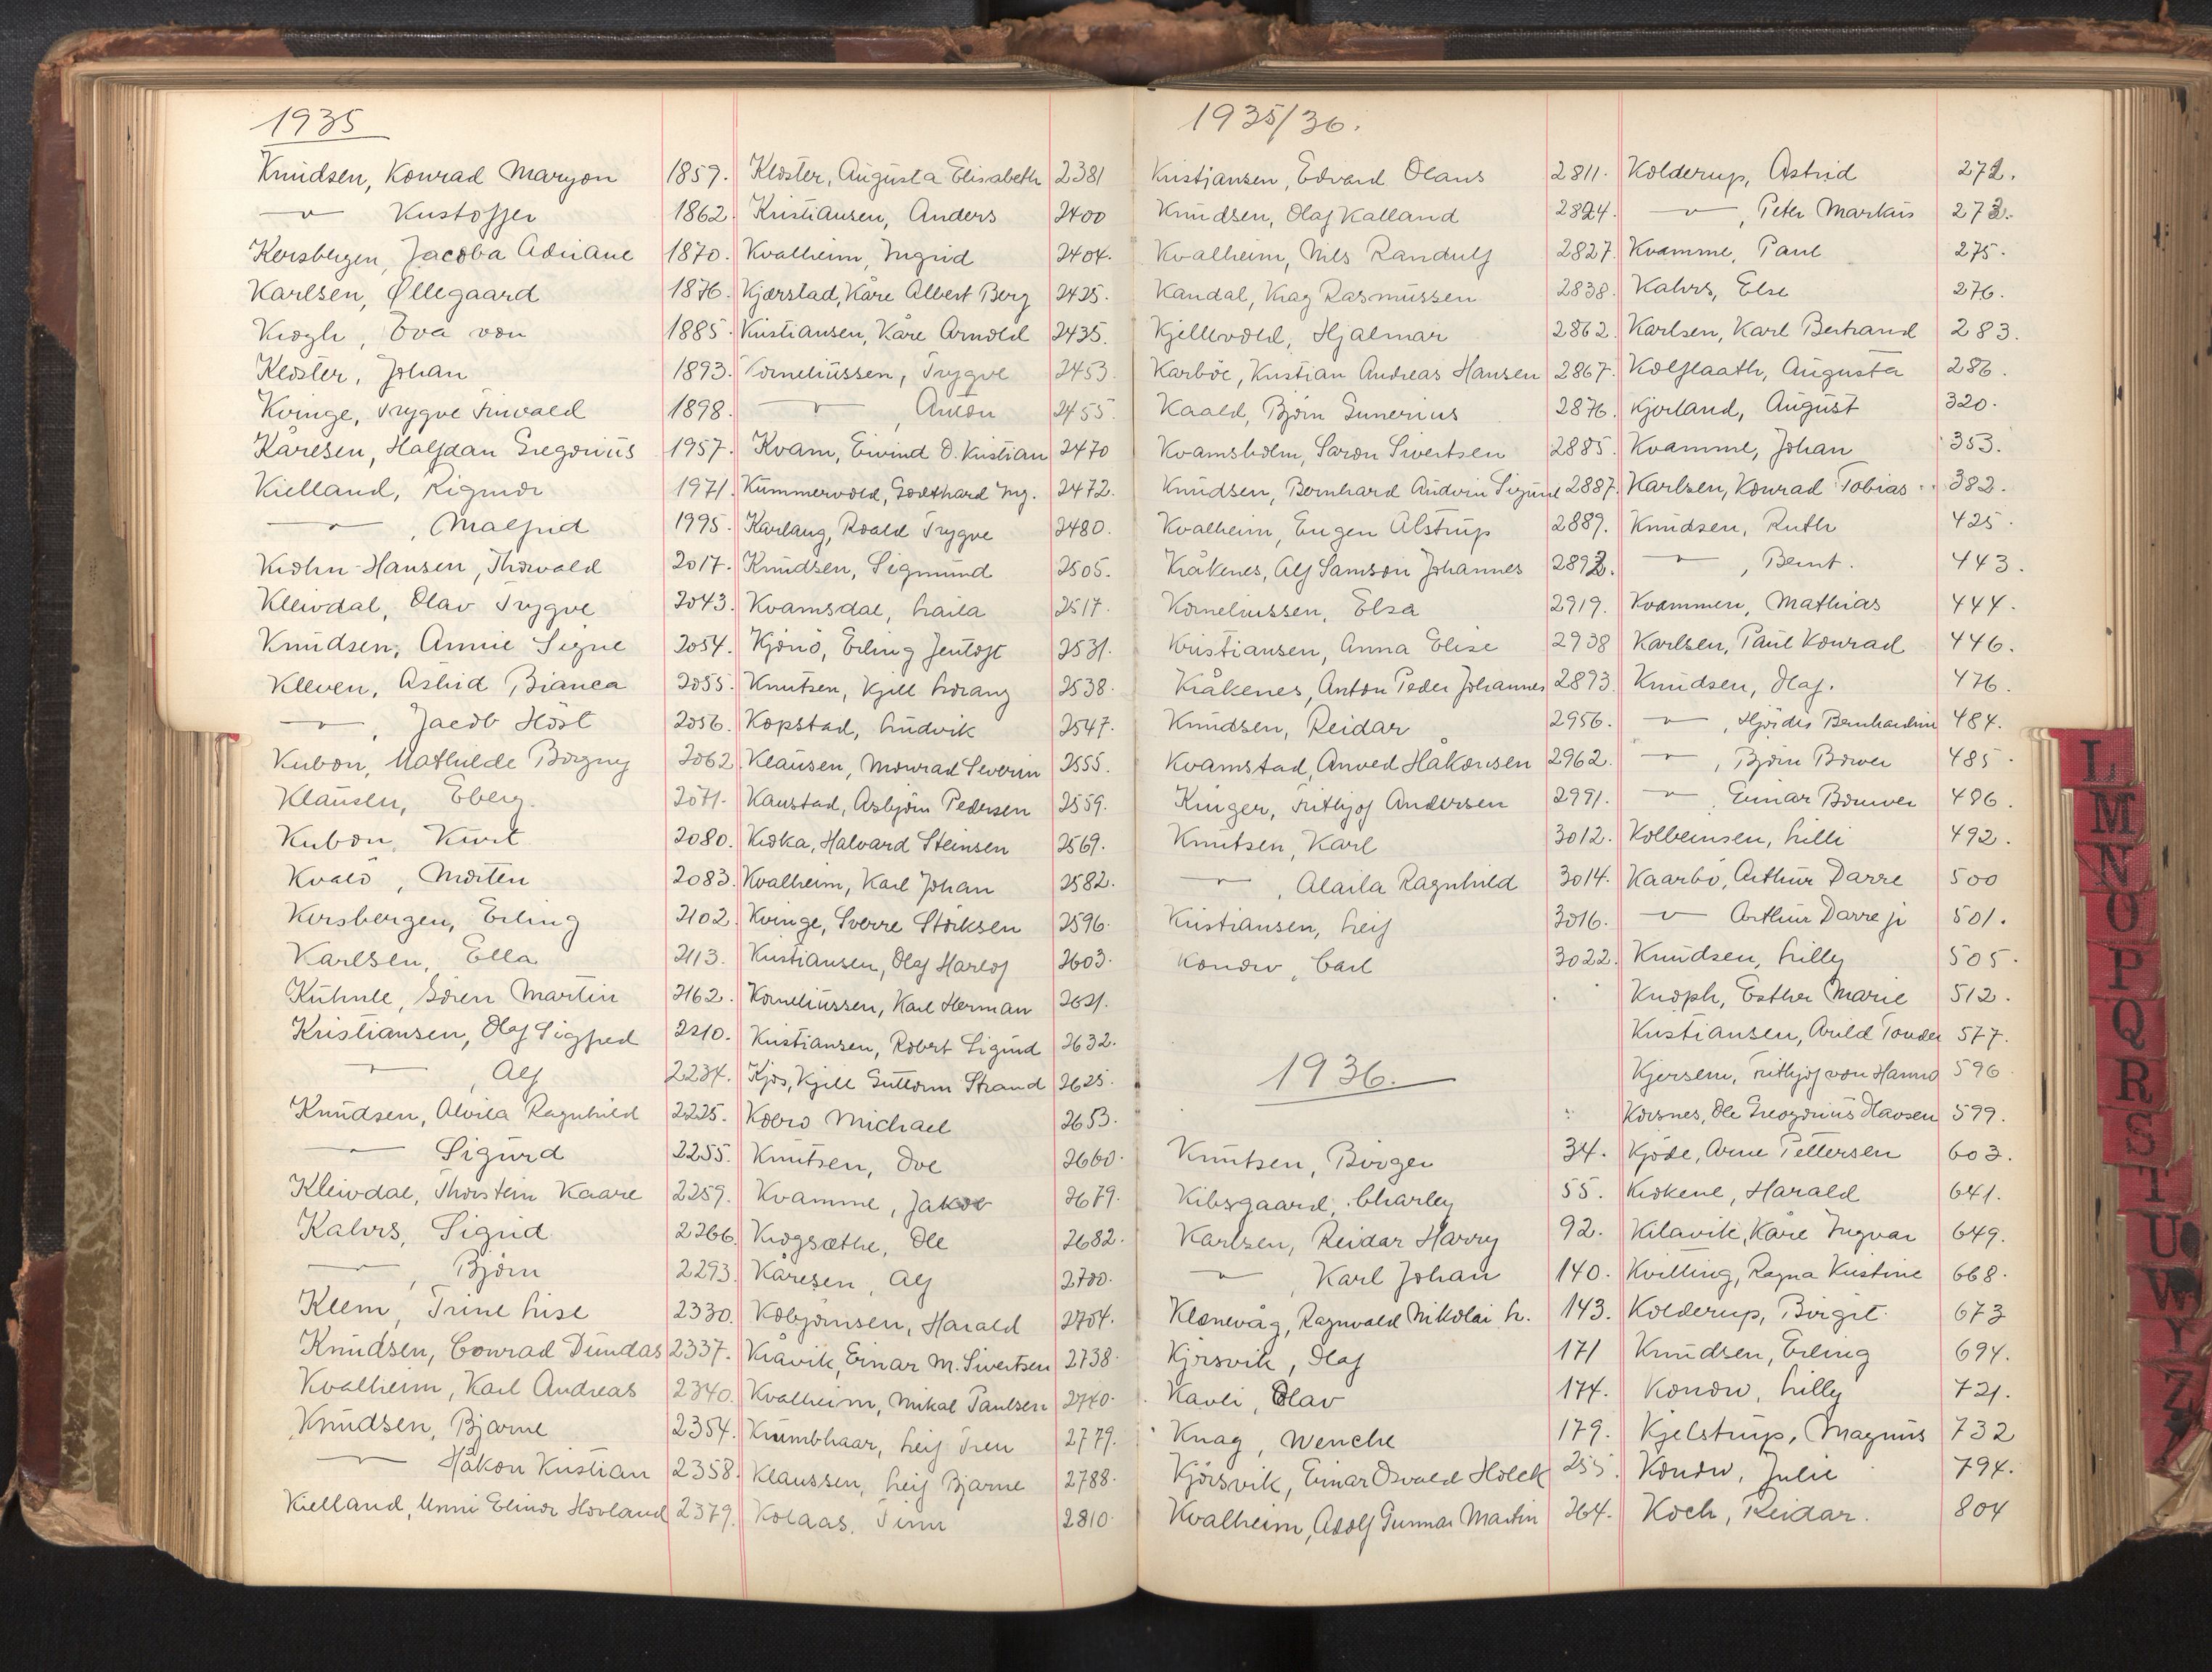 1935
Knudsen, Konrad Maryon 1859.
—"— Kristoffer 1862.
Korsbergen, Jacoba Adriane 1870.
Karlsen, Øllegaard 1876.
Krogh, Eva von 1885.
Kloster, Johan 1893.
Kvinge, Trygve Finvald 1898.
Kåresen, Halfdan Gregorius 1957.
Kielland, Rigmor 1971.
—"—, Malfrid 1995.
Krohn-Hansen, Thorvald 2017.
Kleivdal, Olav Trygve 2043.
Knudsen, Annie Signe 2054.
Kleven, Astrid Bianca 2055.
—"—, Jacob Höst 2056.
Kubon, Mathilde Borgny 2062
Klausen, Eberg. 2071.
Kubon, Kurt 2080.
Kvalö, Morten 2083.
Korsbergen, Erling 2102.
Karlsen, Ella 2113.
Kühnle, Sören Martin 2162.
Kristiansen, Olaf Sigfred 2210.
—"—, Alf 2234.
Knudsen, Alvila Ragnhild 2225.
—"— Sigurd 2255.
Kleivdal, Thorstein Kaare 2259.
Kahrs, Sigrid 2266.
—"—, Björn 2293.
Klem, Trine Lise 2330.
Knudsen, Conrad Dundas 2337.
Kvalheim, Karl Andreas 2340.
Knudsen, Bjarne 2354.
—"— Håkon Kristian 2358.
Kielland, Unni Elinor Hovland 2379.
Kloster, Augusta Elisabeth 2381
Kristiansen, Anders 2400
Kvalheim, Ingrid 2404.
Kjærstad, Kåre Albert Berg 2425.
Kristiansen, Kåre Arnold 2435.
Korneliussen, Trygve 2453.
—"—, Anton 2455.
Kvam, Eivind O. Kristian 2470
Kummervold, Godthard Ing. 2472.
Karlaug, Roald Trygve 2480.
Knudsen, Sigmund 2505.
Kvamsdal, Laila 2517.
Kjönö, Erling Jentoft 2531.
Knutsen, Kjell Lorang 2538.
Kopstad, Ludvik 2547.
Klausen, Monrad Severin 2555.
Kaustad, Asbjörn Pedersen 2559.
Kroka, Halvard Steinsen 2569.
Kvalheim, Karl Johan 2582.
Kvinge, Sverre Störksen 2596.
Kristiansen, Olaf Harlof 2603.
Korneliussen, Karl Herman 2621.
Kristiansen, Robert Sigurd 2632.
Kjos, Kjell Guttorm Strand 2625.
Kobro Michael 2653.
Knutsen, Ove 2660.
Kvamme, Jakob 2679.
Krogsæthe, Ole 2682.
Kåresen, Alf 2700.
Kolbjörnsen, Harald 2704.
Kråvik, Einar M. Sivertsen 2738.
Kvalheim, Mikal Paulsen 2740.
Krumbhaar, Leif Treu 2779.
Klaussen, Leif Bjarne 2788.
Kolaas, Finn 2810.
1935/36.
Kristiansen, Edvard Olaus 2811.
Knudsen, Olaf Kalland 2824.
Kvalheim, Nils Randulf 2827.
Kandal, Krag Rasmussen 2838.
Kjellevold, Hjalmar 2862.
Karböe, Kristian Andreas Hansen 2867.
Kaald, Björn Gunerius 2876.
Kvamsholm, Saron Sivertsen 2885.
Knudsen, Bernhard Andorin Sigurd 2887.
Kvalheim, Eugen Alstrup 2889.
Kråkenes, Alf Samson Johannes 2892.
Korneliussen, Elsa 2919.
Kristiansen, Anna Elise 2938
Kråkenes, Anton Peder Johannes 2893.
Knudsen, Reidar 2956.
Kvamstad, Anved Håkonsen 2962.
Krüger, Frithjof Andersen 2991.
Knutsen, Karl 3012.
—"—, Alaila Ragnhild 3014.
Kristiansen, Leif 3016.
Konow, Carl 3022.
1936.
Knutsen, Birger 34.
Kibsgaard, Charley 55.
Karlsen, Reidar Harry 92.
—"—, Karl Johan 140.
Klonevåg, Ragnvald Nikolai L. 143.
Kjörsvik, Olaf 171
Kavli, Olav 174.
Knag, Wenche 179.
Kjörsvik, Einar Osvald Holck 255.
Kvalheim, Adolf Gunnar Martin 264.
Kolderup, Astrid 272.
—"—, Peter Markus 273.
Kvamme, Paul 275.
Kahrs, Else 276.
Karlsen, Karl Bertrand 283.
Kolflaath, Augusta 286.
Kjorland, August 320.
Kvamme, Johan 353.
Karlsen, Konrad Tobias 382.
Knudsen, Ruth 425.
—"—, Bernt. 443.
Kvammen, Mathias 444.
Karlsen, Paul Konrad 446.
Knudsen, Olaf. 476.
—"—, Hjördis Bernhardine 484.
—"—, Björn Bower 485.
—"—, Einar Bouwer 486.
Kolbeinsen, Lilli 492.
Kaarbö, Arthur Darre 500
—"— Arthur Darre jr 501.
Knudsen, Lilly 505.
Knoph, Esther Marie 512.
Kristiansen, Arild Tonder 577.
Kjersem, Frithjof von Hanno 596
Korsnes, Ole Gregorius Olavsen 599.
Kjöde, Arne Pettersen 603.
Krokene, Harald 641.
Kilavik, Kåre Ingvar 649.
Kvitting, Ragna Kristine 668.
Kolderup, Birgit 673
Knudsen, Erling 694.
Konow, Lilly 721.
Kjelstrup, Magnus 732
Konow, Julie 794.
Koch, Reidar. 804
L
M
N
O
P
Q
R
S
T
U
W
Y
Z